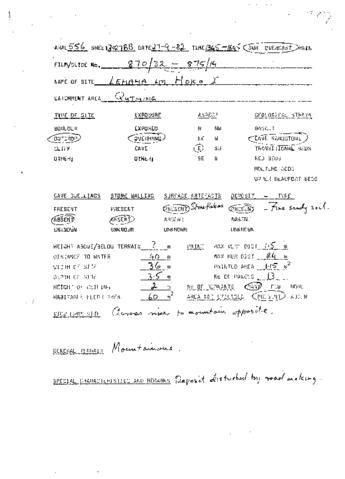 ARAL 556 SHEET 2927BB DATE 27-9-82 TIME SUN OVERCAST RAIN
FILM/SLIDE No. 870/32 - 875/14
NAME OF SITE LEHAHA LA
CATCHMENT AREA
TYPE OF SITE EXPOSURE ASPECT GEOLOGICAL STRATA
BOULDER EXPOSED N NW BASALT
OUTCROP OVERHANG CAVE SANDSTONE
CLIFF CAVE E SW TRANSITIONAL BEDS
OTHER: OTHER: SE RED BEDS
MOLTENO BEDS
UPPER BEAUFORT BEDS
CAVE DWELLINGS STONE WALLING SURFACE ARTEFACTS DEPOSIT - TYPE
PRESENT PRESENT PRESENT PRESENT - Fine sandy soil.
ABSENT ABSENT ABSENT ABSENT
UNKNOWN UNKNOWN UNKNOWN UNKNOWN
HEIGHT ABOVE/BELOW TERRAIN ? m PAINT MAX VERT DIST 1.5 m
DISTANCE TO WATER 40 m MAX HOR DIST m
WIDTH OF SITE 36 m PAINTED AREA m²
DEPTH OF SITE 3.5 m No OF PANELS 13
HEIGHT OF CEILING 2 m
HABITABLE FLOOR AREA 60 m²
VIEW FROM SITE Across river to mountain opposite.
GENERAL TERRAIN Mountainous.
SPECIAL CHARACTERISTICS AND REMARKS Deposit disturbed by road making.